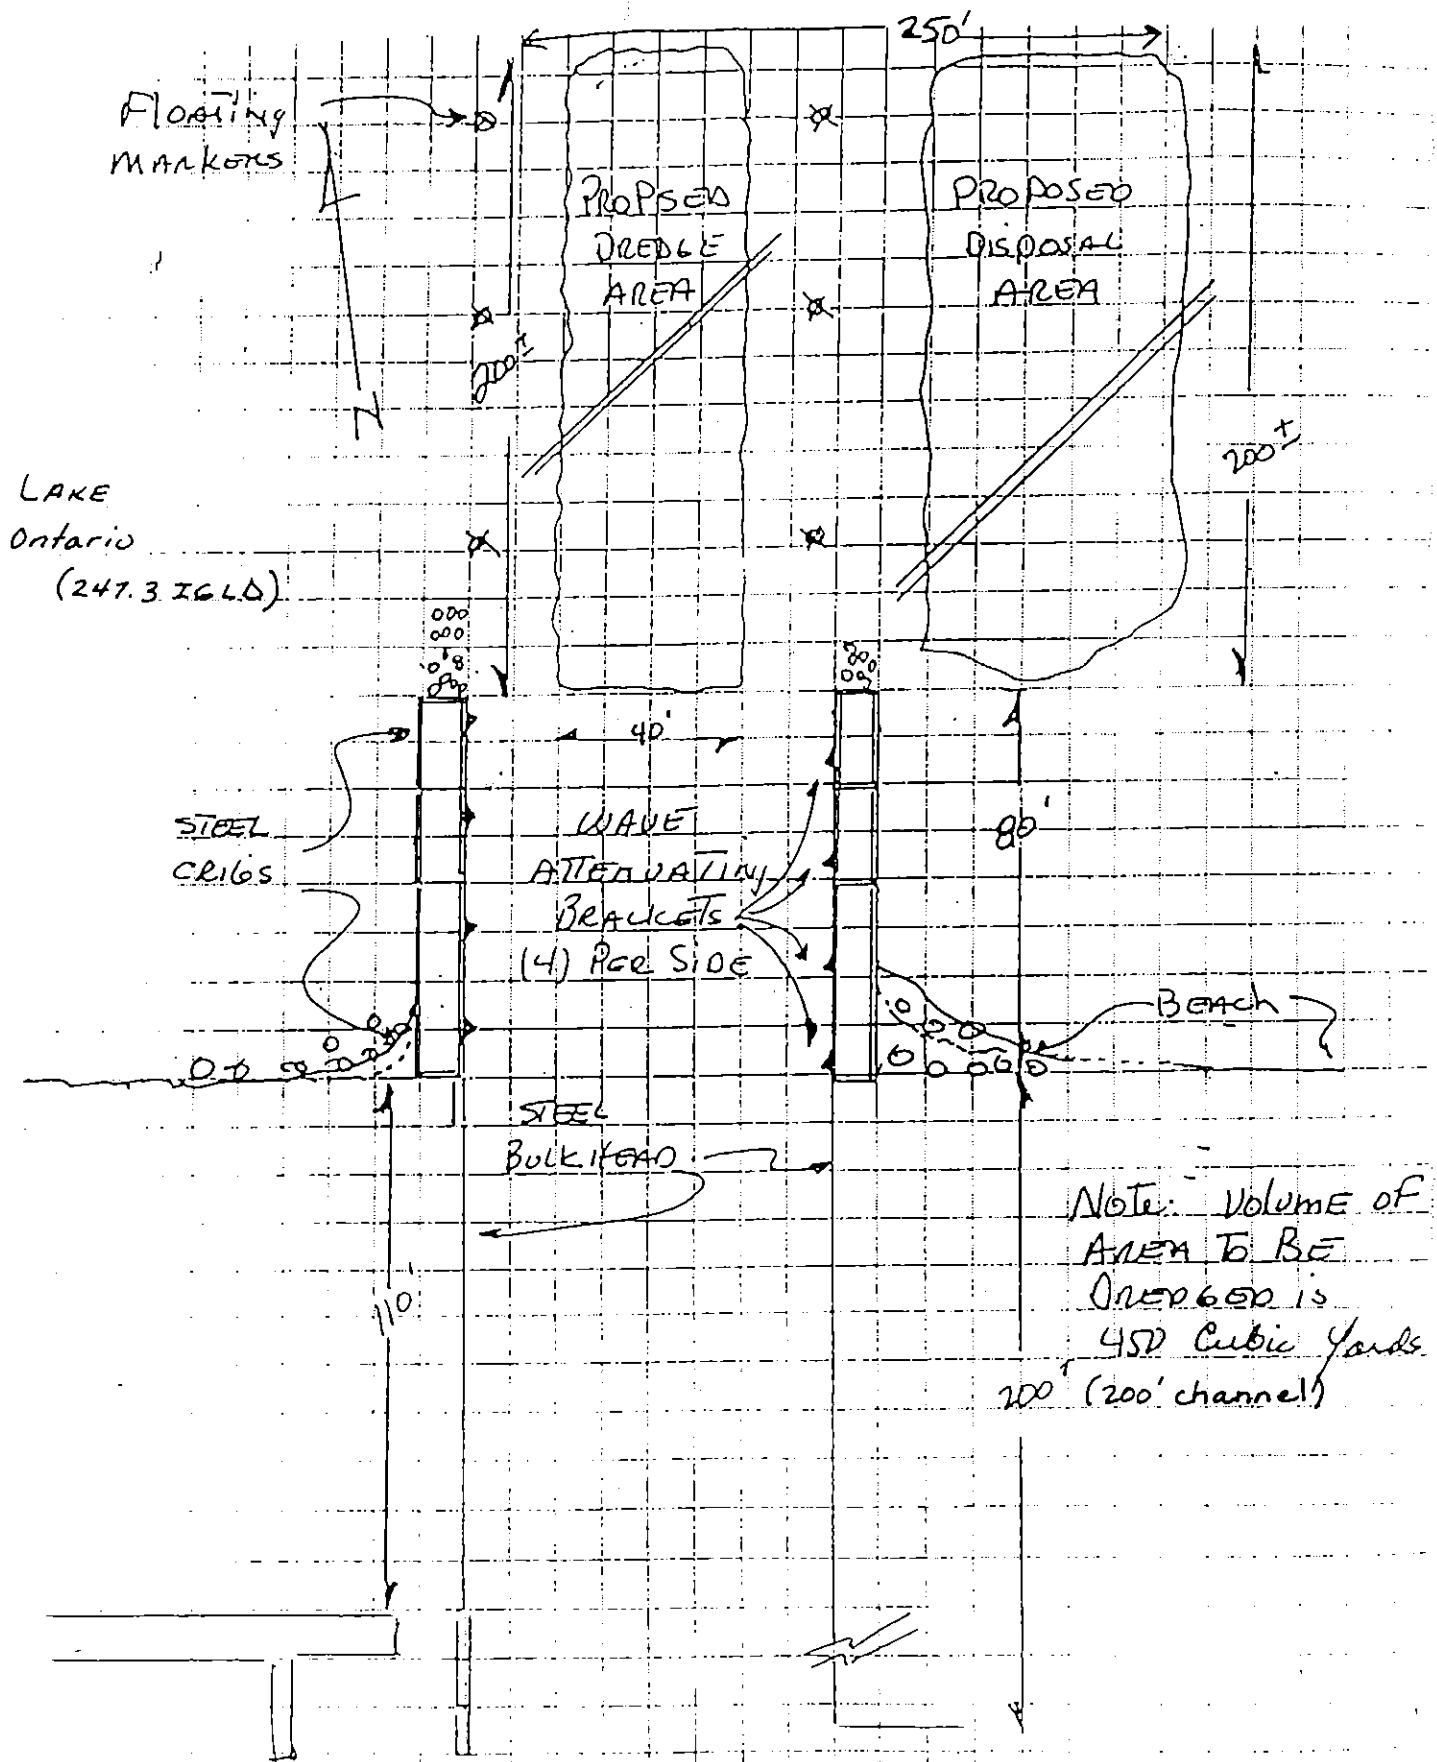 250'
Floating
Markers
PROPSED
DREDGE
AREA
PROPOSED
DISPOSAL
AREA
N
200±
200±
LAKE
Ontario
(247.3 IGLD)
40'
80'
STEEL
CRIBS
WAVE
ATTENUATING
BRACKETS
(4) PER SIDE
BEACH
STEEL
BULKHEAD
110'
NOTE: VOLUME OF
AREA TO BE
DREDGED is
450 Cubic Yards
200' (200' channel)